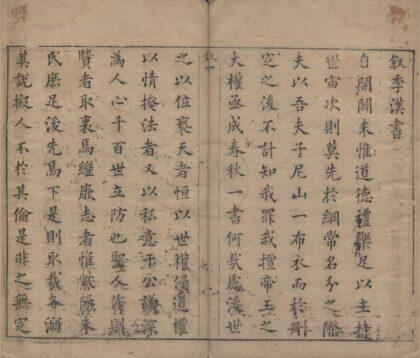 叙季漢書
自開闢来惟道德禮樂足以主持
世宙次則莫先於綱常名分之際
夫以吾夫子尼山一布衣而於刪
定之後不計知我罪我擅帝王之
大權亟成春秋一書何哉處後世
叙一
之以位褻天者恒以世權侵道權
以情掩法者又以私意干公議深
為人心千百世立防也聖人徃則
賛者取裏焉繼厥志者惟紫陽朱
氏庶足後先焉下是則取裁各溺
其說擬人不於其倫是非之無定